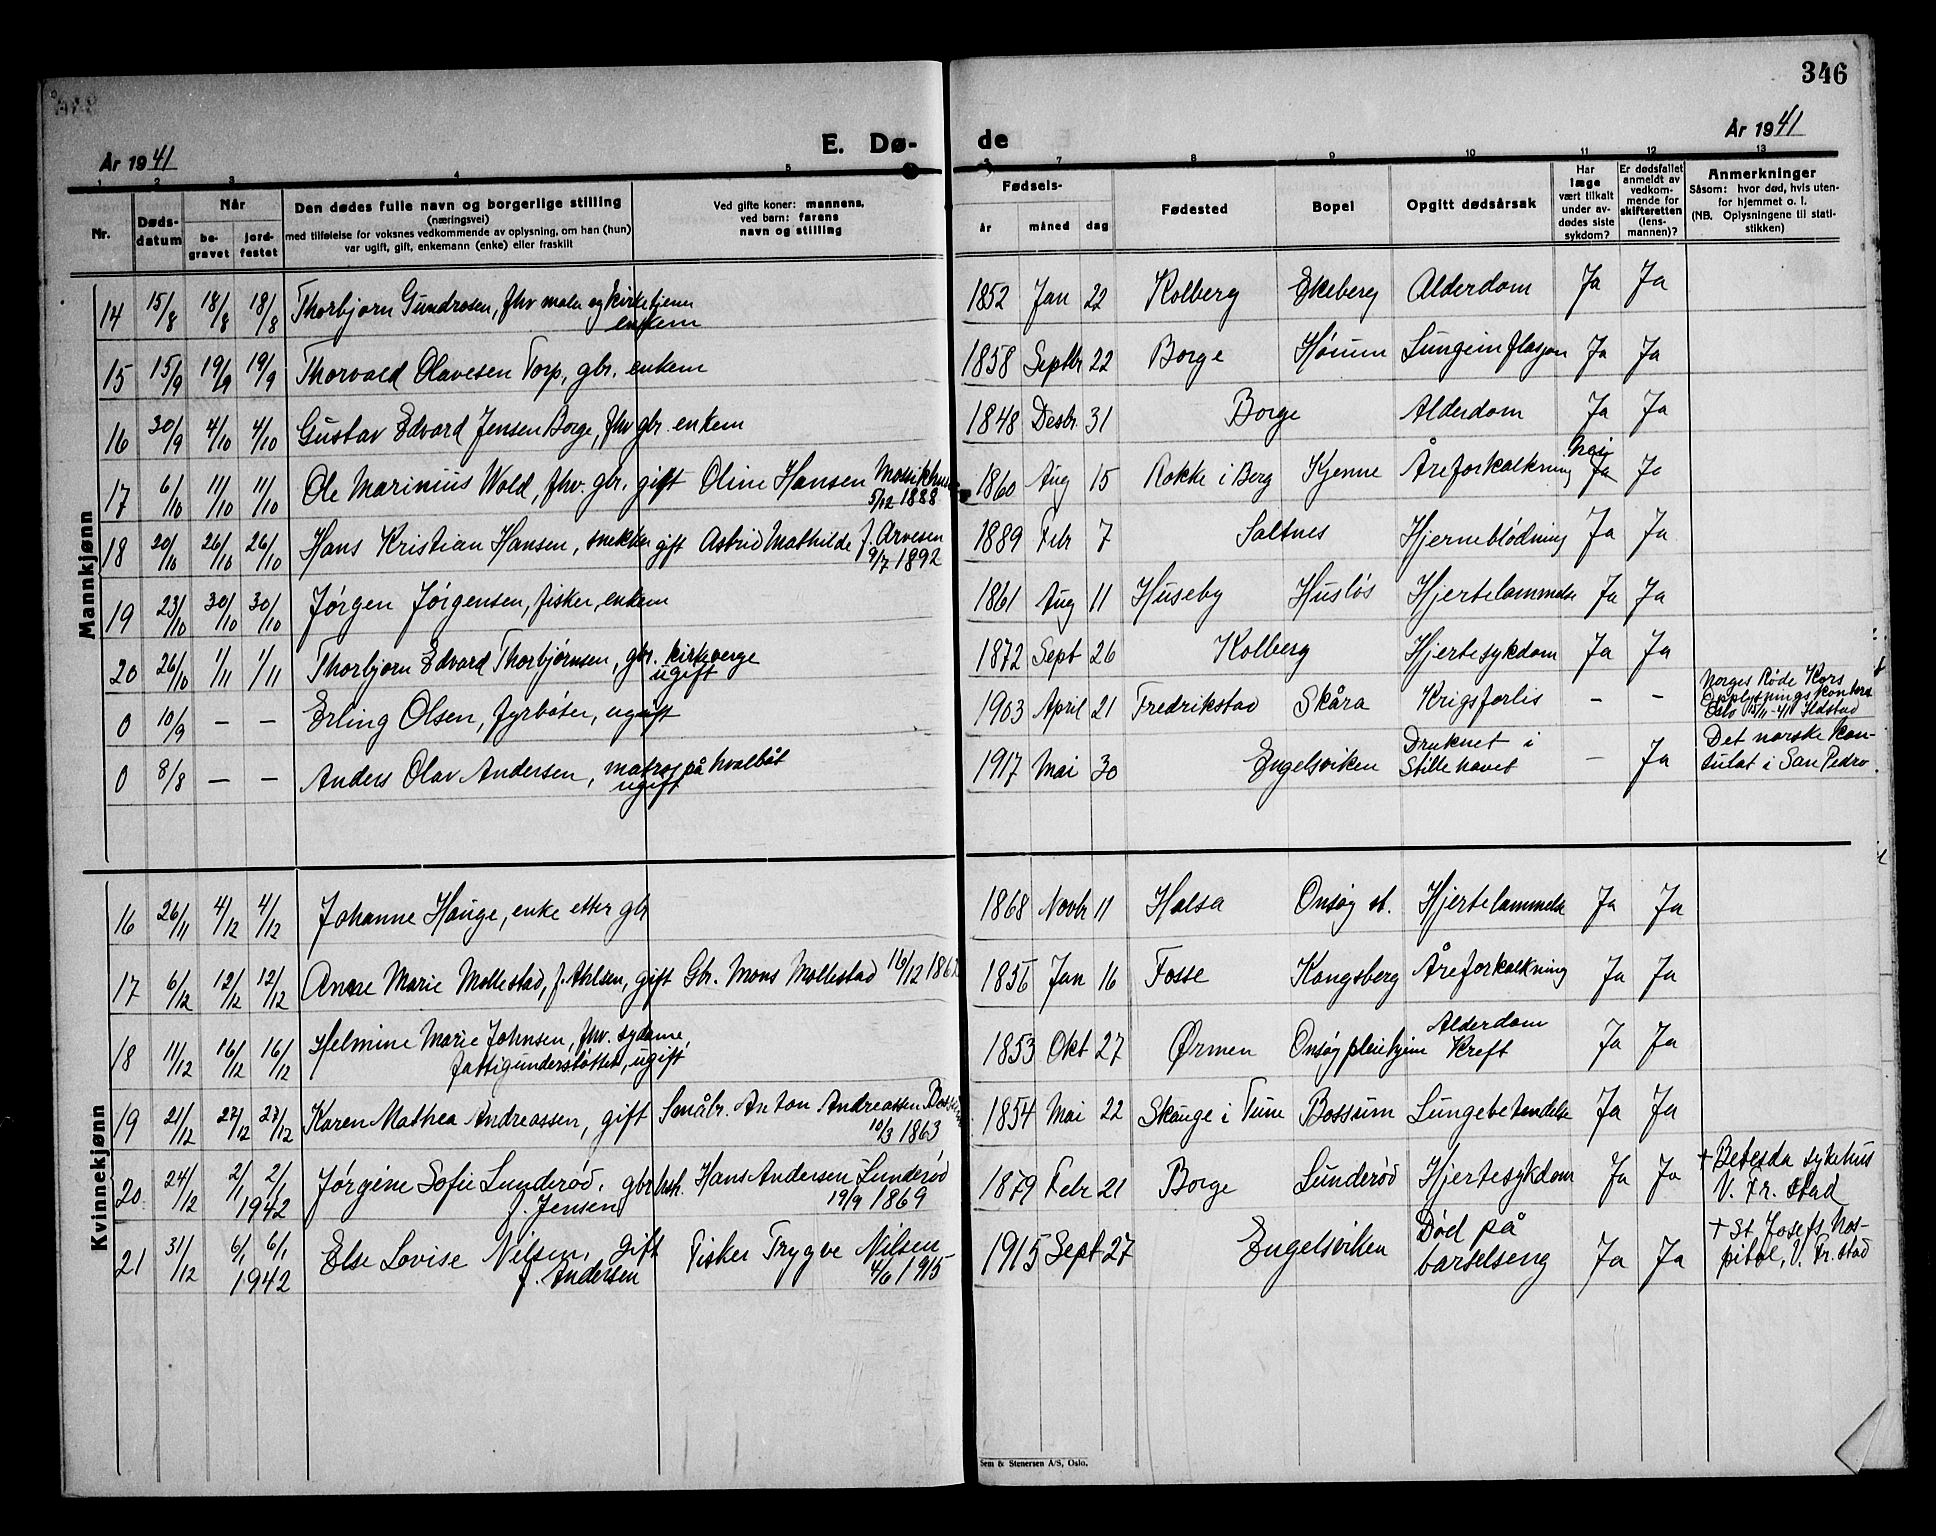 346
År 1941
E. Dø-
de
År 1941
1 2 3 4 5 6 7 8 9 10 11 12 13
Nr.
Døds-
datum
Når
be-
gravet
jord-
festet
Den dødes fulle navn og borgerlige stilling
(næringsvei)
med tilføielse for voksnes vedkommende av oplysning, om han (hun)
var ugift, gift, enkemann (enke) eller fraskilt
Ved gifte koner: mannens,
ved barn: farens
navn og stilling
Fødsels-
år måned dag
Fødested
Bopel
Opgitt dødsårsak
Har
læge
vært tilkalt
under av-
dødes siste
sykdom?
Er dødsfallet
anmeldt av
vedkom-
mende for
skifteretten
(lens-
mannen)?
Anmerkninger
Såsom: hvor død, hvis uten-
for hjemmet o. l.
(NB. Oplysningene til stati-
stikken)
Mannkjønn
14 15/8 18/8 18/8 Thorbjørn Gundrosen, fhv maler og kirketjener
enkem
1852 Jan 22 Kolberg Ekeberg Alderdom Ja Ja
15 15/9 19/9 19/9 Thorvald Olavesen Torp, gbr. enkem
1858 Septbr 22 Borge Hörum Lungeinflasjon Ja Ja
16 30/9 4/10 4/10 Gustav Edvard Jensen Borge, fhv gbr. enkem
1848 Desbr. 31 Borge Alderdom Ja Ja
17 6/10 11/10 11/10 Ole Marinius Wold, fhv. gbr. gift Oline Hansen
5/12 1888
1860 Aug 15 Rokke i Berg Kjenne Åreforkalkning Nei Ja Ja
18 20/10 26/10 26/10 Hans Kristian Hansen, snekker gift Astrid Mathilde f. Arvesen
9/7 1892
1889 Febr 7 Saltnes Hjerneblödning Ja Ja
19 23/10 30/10 30/10 Jørgen Jørgensen, fisker, enkem
1861 Aug 11 Huseby Husløs Hjertelammelse Ja Ja
20 26/10 1/11 1/11 Thorbjørn Edvard Thorbjørnsen, gbr. kirkeverge
ugift
1872 Sept 26 Kolberg Hjertesykdom Ja Ja
0 10/9 — — Erling Olsen, fyrbøter, ugift
1903 April 21 Fredrikstad Skåra Krigsforlis — —
Norges Røde Kors
Opplysningskontor
Oslo 15/11-41
0 8/8 — — Anders Olav Andersen, matros på hvalbåt
ugift
1917 Mai 30 Engelsviken Druknet i
Stillehavet — Ja
Det norske kon-
sulat i San Pedro
Kvinnekjønn
16 26/11 4/12 4/12 Johanne Hauge, enke etter gbr
1868 Novbr 11 Halsa Onsøy st. Hjertelammelse Ja Ja
17 6/12 12/12 12/12 Anne Marie Mollestad, f. Ahlsen, gift Gbr. Mons Mollestad 16/12
1856 Jan 16 Fosse Kongsberg Åreforkalkning Ja Ja
18 11/12 16/12 16/12 Helmine Marie Johnsen, fhv. sydame,
fattigunderstøttet, ugift
1853 Okt 27 Ørmen Onsøy pleiehjem Alderdom
Kreft Ja Ja
19 21/12 27/12 27/12 Karen Mathea Andreassen, gift Småbr. Anton Andreassen Bossum
10/3 1863
1854 Mai 22 Skauge i Tune Bossum Lungebetendelse Ja Ja
20 24/12 2/1 2/1 Jørgine Sofie Lunderød, gbrhsk. Hans Andersen Lunderød
1942 f. Jensen 19/9 1869
1879 Febr 21 Borge Lunderød Hjertesykdom Ja Ja
+ Betesda sykehus
V. Fr. stad
21 31/12 6/1 6/1 Else Lovise Nilsen, gift Fisker Trygve Nilsen
1942 f. Andersen 4/6 1915
1915 Sept 27 Engelsviken Død på
barselseng Ja Ja
+ St. Josefs hos-
pital, V. Fr. stad
Sem & Stenersen A/S, Oslo.